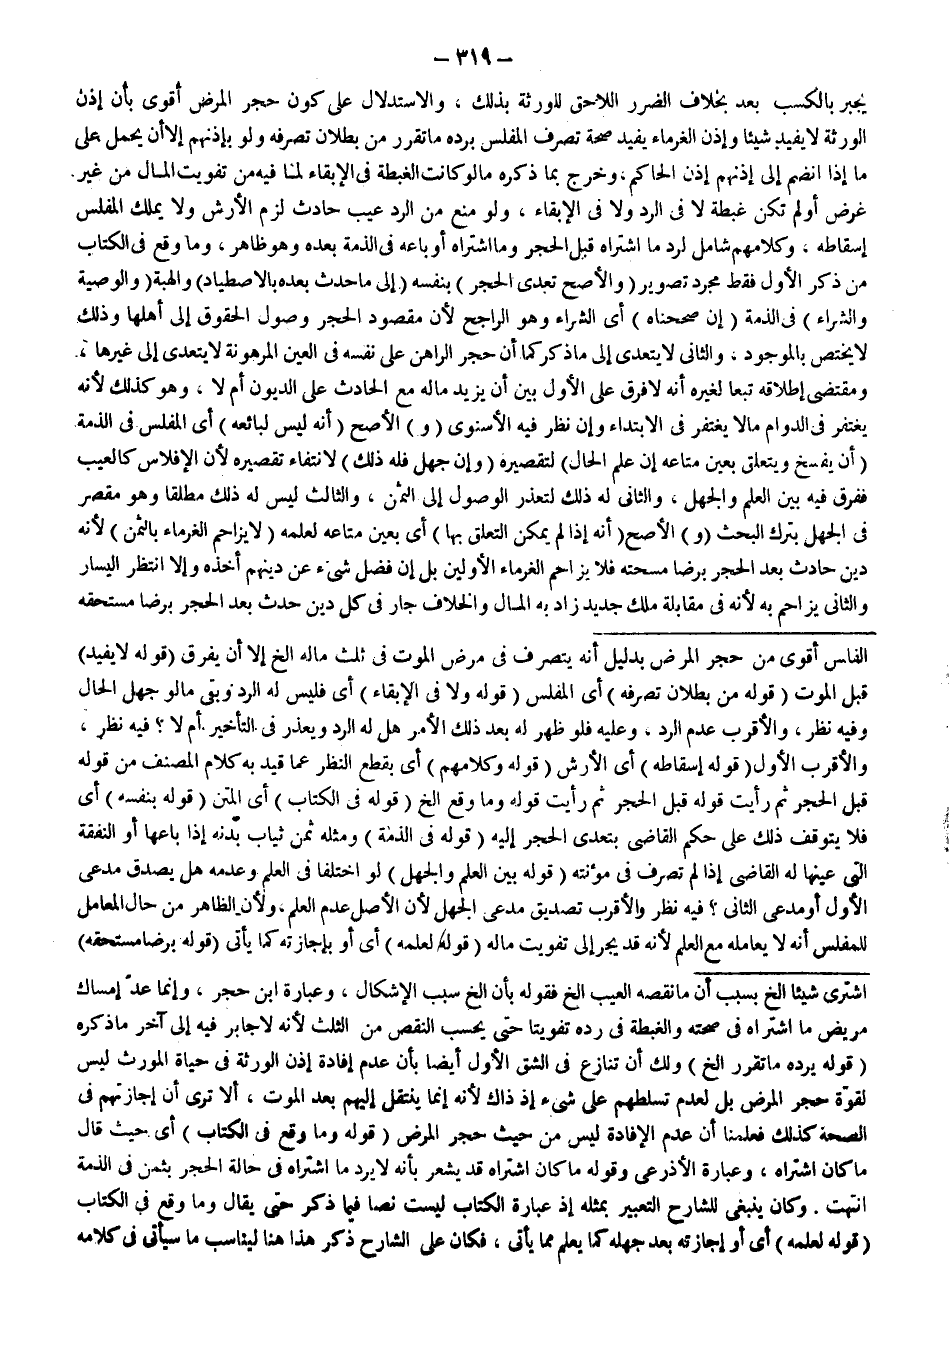 – ٣١٩ –
يجبر بالكسب بعد بخلاف الضرر اللاحق للورثة بذلك ، والاستدلال على كون حجر المرض أقوى بأن إذن
الورثة لا يفيد شيئا وإذن الغرماء يفيد صحة تصرف المفلس يرده ماتقرر من بطلان تصرفه ولو بإذنهم إلاأن يحمل على
ما إذا انضم إلى إذنهم إذن الحاكم ، وخرج بما ذكره مالوكانت الغبطة فى الإبقاء لما فيه من تفويت المال من غير
غرض أولم تكن غبطة لا فى الرد ولا فى الإبقاء ، ولو منع من الرد عيب حادث لزم الأرش ولا يملك المفلس
إسقاطه ، وكلامهم شامل لرد ما اشتراه قبل الحجر ومااشتراه أوباعه فى الذمة بعده وهوظاهر ، وما وقع فى الكتاب
من ذكر الأول فقط مجرد تصوير ( والأصح تعدى الحجر ) بنفسه ( إلى ماحدث بعده بالاصطياد) والهبة( والوصية
والشراء ) فى الذمة ( إن صححناه ) أى الشراء وهو الراجح لأن مقصود الحجر وصول الحقوق إلى أهلها وذلك
لايختص بالموجود ، والثانى لايتعدى إلى ماذكركما أن حجر الراهن على نفسه فى العين المرهونة لايتعدى إلى غيرها ،
ومقتضى إطلاقه تبعا لغيره أنه لافرق على الأول بين أن يزيد ماله مع الحادث على الديون أم لا ، وهو كذلك لأنه
يغتفر فى الدوام مالا يغتفر فى الابتداء وإن نظر فيه الأسنوى ( و ) الأصح ( أنه ليس لبائعه ) أى المفلس فى الذمة
( أن يفسخ ويتعلق بعين متاعه إن علم الحال) لتقصيره ( وإن جهل فله ذلك ) لانتفاء تقصيره لأن الإفلاس كالعيب
ففرق فيه بين العلم والجهل ، والثانى له ذلك لتعذر الوصول إلى الثمن ، والثالث ليس له ذلك مطلقا وهو مقصر
فى الجهل بترك البحث (و ) الأصح( أنه إذا لم يمكن التعلق بها ) أى بعين متاعه لعلمه ( لايزاحم الغرماء بالثمن ) لأنه
دين حادث بعد الحجر برضا مستحقه فلا يزاحم الغرماء الأولين بل إن فضل شىء عن دينهم أخذه وإلا انتظر اليسار
والثانى يزاحم به لأنه فى مقابلة ملك جديد زاد به المال والخلاف جار فى كل دين حدث بعد الحجر برضا مستحقه
الفلس أقوى من حجر المرض بدليل أنه يتصرف فى مرض الموت فى ثلث ماله الخ إلا أن يفرق (قوله لايفيد)
قبل الموت ( قوله من بطلان تصرفه ) أى المفلس ( قوله ولا فى الإبقاء ) أى فليس له الرد وبقى مالو جهل الحال
وفيه نظر ، والأقرب عدم الرد ، وعليه فلو ظهر له بعد ذلك الأمر هل له الرد ويعذر فى التأخير أم لا ؟ فيه نظر ،
والأقرب الأول( قوله إسقاطه ) أى الأرش ( قوله وكلامهم ) أى بقطع النظر عما قيد به كلام المصنف من قوله
قبل الحجر ثم رأيت قوله قبل الحجر ثم رأيت قوله وما وقع الخ ( قوله فى الكتاب ) أى المتن ( قوله بنفسه ) أى
فلا يتوقف ذلك على حكم القاضى بتعدى الحجر إليه ( قوله فى الذمة ) ومثله ثمن ثياب بدنه إذا باعها أو النفقة
التى عينها له القاضى إذا لم تصرف فى مؤنته ( قوله بين العلم والجهل ) لو اختلفا فى العلم وعدمه هل يصدق مدعى
الأول أومدعى الثانى ؟ فيه نظر والأقرب تصديق مدعى الجهل لأن الأصل عدم العلم ، ولأن الظاهر من حال المعامل
للمفلس أنه لا يعامله مع العلم لأنه قد يجر إلى تفويت ماله ( قوله لعلمه ) أى أو بإجازته كما يأتى (قوله برضامستحقه)
اشترى شيئا الخ بسبب أن مانقصه العيب الخ فقوله بأن الخ سبب الإشكال ، وعبارة ابن حجر ، وإنما عدّ إمساك
مريض ما اشتراه فى صحته والغبطة فى رده تفويتا حتى يحسب النقص من الثلث لأنه لاجابر فيه إلى آخر ماذكره
( قوله يرده ماتقرر الخ ) ولك أن تنازع فى الشق الأول أيضا بأن عدم إفادة إذن الورثة فى حياة المورث ليس
لقوّة حجر المرض بل لعدم تسلطهم على شىء إذ ذاك لأنه إنما ينتقل إليهم بعد الموت ، ألا ترى أن إجازتهم فى
الصحة كذلك فعلمنا أن عدم الإفادة ليس من حيث حجر المرض ( قوله وما وقع فى الكتاب ) أى حيث قال
ماكان اشتراه ، وعبارة الأذرعى وقوله ماكان اشتراه قد يشعر بأنه لايرد ما اشتراه فى حالة الحجر بثمن فى الذمة
انتهت . وكان ينبغى للشارح التعبير بمثله إذ عبارة الكتاب ليست نصا فيما ذكر حتى يقال وما وقع فى الكتاب
( قوله لعلمه ) أى أو إجازته بعد جهله كما يعلم مما يأتى ، فكان على الشارح ذكر هذا هنا ليناسب ما سيأتى فى كلامه